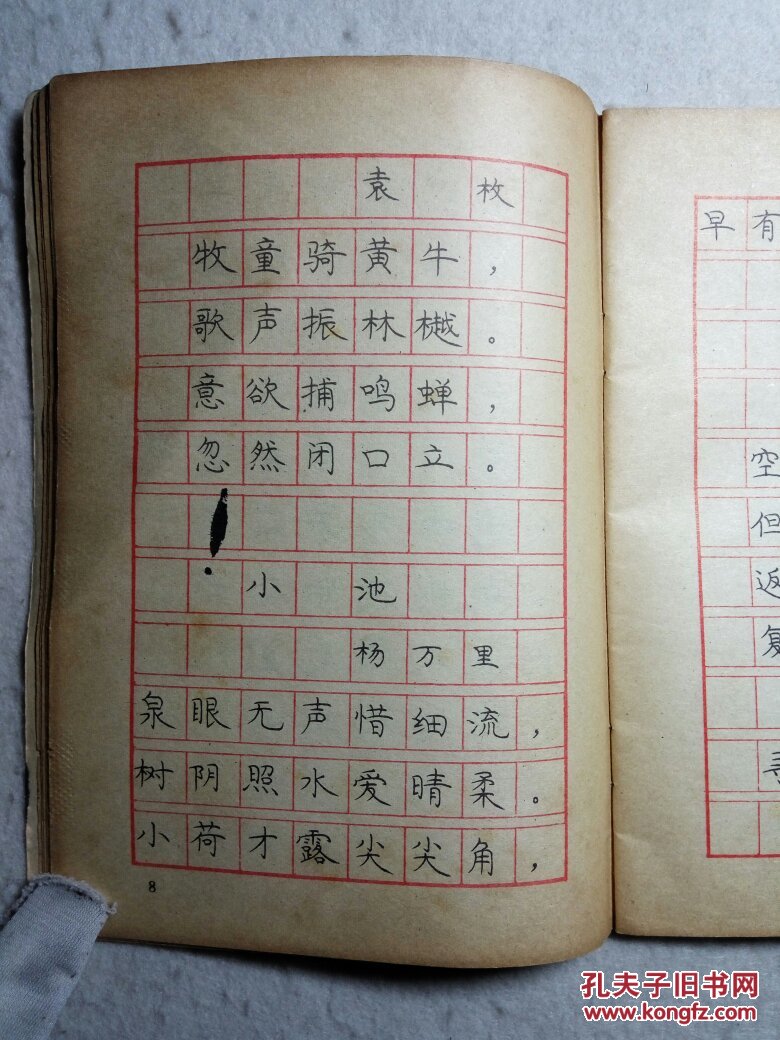 袁 枚
牧童骑黄牛，
歌声振林樾。
意欲捕鸣蝉，
忽然闭口立。
小 池
杨万里
泉眼无声惜细流，
树阴照水爱晴柔。
小荷才露尖尖角，
8
早有
空
但
返
复
孔夫子旧书网
www.kongfz.com